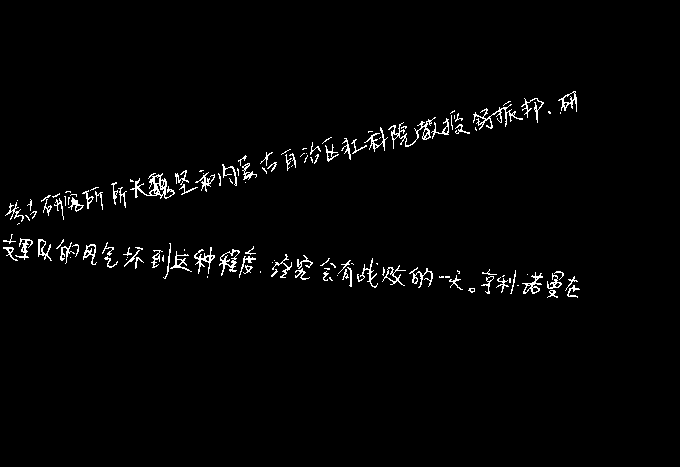 考古研究所所长魏坚和内蒙古自治区社科院教授舒振邦、研
克军队的风气坏到这种程度,注定会有战败的一天。亨利·诺曼在